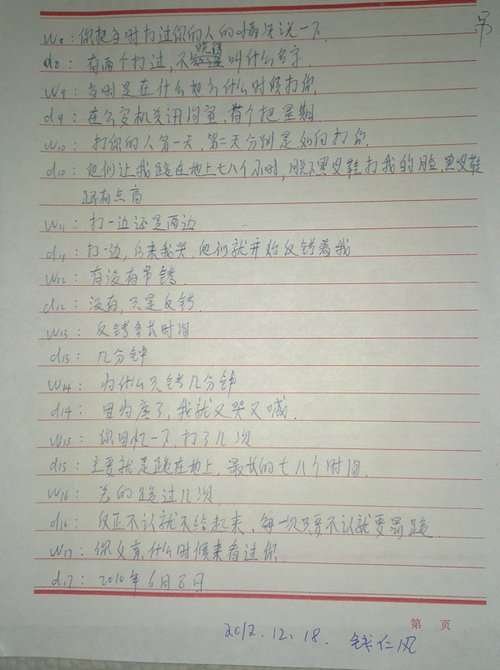 W8：你把当时打过你的人的情况说一下
d8：有两个打过，不晓得叫什么名字
W9：当时是在什么地方什么时候打你
d9：在公安机关讯问室，有个把星期
W10：打你的人第一天，第二天分别是如何打你
d10：他们让我跪在地上七八个小时，脱下雨鞋打我的脸，鞋
还有点
W11：打一边还是两边
d11：打一边，后来我哭，他们就开始反铐着我
W12：有没有吊铐
d12：没有，只是反铐
W13：反铐多长时间
d13：几分钟
W14：为什么只铐几分钟
d14：因为疼了，我就又哭又喊
W15：你回忆一下，打了几次
d15：主要就是跪在地上，最长的七八个时间
W16：总的跪过几次
d16：反正不认就不给起来，每一次只要不认就要罚跪
W17：你父亲，什么时候来看过你
d17：2010年6月8日
第 页
2012.12.18. 钱仁风